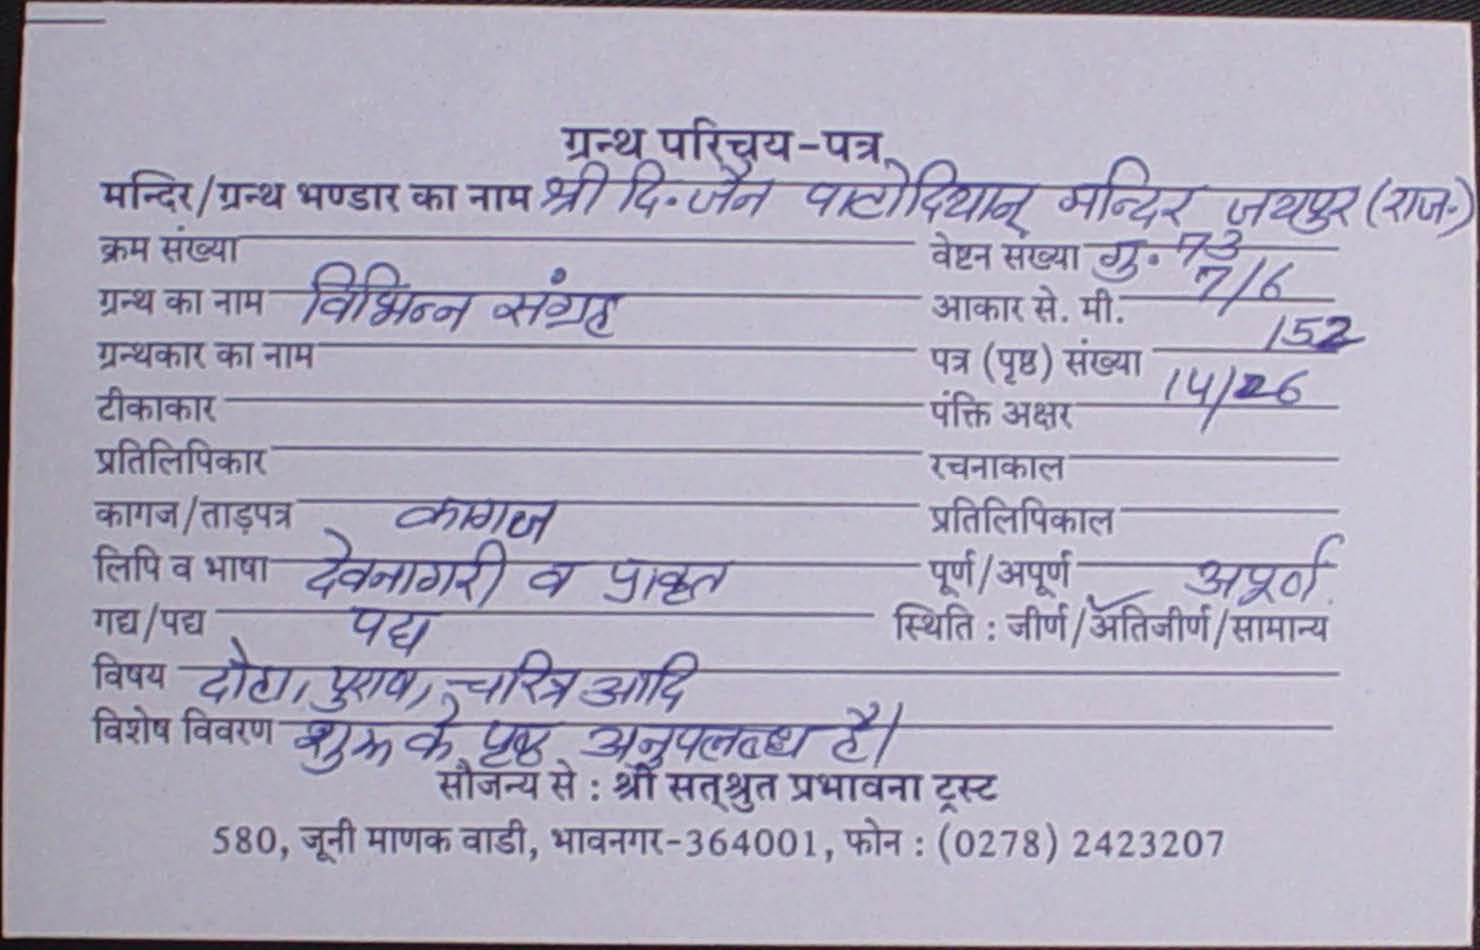 ग्रन्थ परिचय-पत्र
मन्दिर/ग्रन्थ भण्डार का नाम श्री दि. जैन पाटोदियान् मन्दिर जयपुर (राज.)
क्रम संख्या वेष्टन संख्या गु. 73
ग्रन्थ का नाम विभिन्न संग्रह आकार से. मी. 7/6
ग्रन्थकार का नाम पत्र (पृष्ठ) संख्या 152
टीकाकार पंक्ति अक्षर 14/26
प्रतिलिपिकार रचनाकाल
कागज/ताड़पत्र कागज प्रतिलिपिकाल
लिपि व भाषा देवनागरी व प्राकृत पूर्ण/अपूर्ण अपूर्ण
गद्य/पद्य पद्य स्थिति : जीर्ण/अतिजीर्ण/सामान्य
विषय दोहा, पुराण, चरित्र आदि
विशेष विवरण शुरू के पृष्ठ अनुपलब्ध है।
सौजन्य से : श्री सत्श्रुत प्रभावना ट्रस्ट
580, जूनी माणक वाडी, भावनगर-364001, फोन : (0278) 2423207